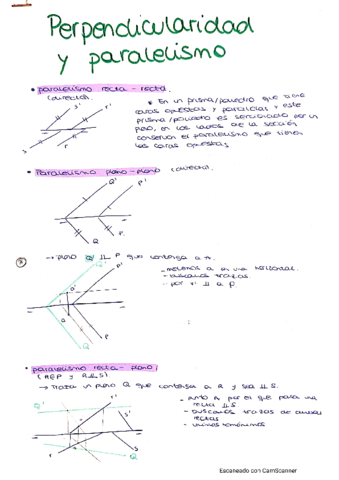 Perpendicularidad
y paralelismo
• paralelismo recta - recta.
(directo)
* En un prisma/poliedro que tiene
caras opuestas y paralelas y este
prisma/poliedro es seccionado por un
plano, en los lados de la sección
conservan el paralelismo que tienen
las caras opuestas.
s' r'
s r
Paralelismo plano - plano (directo)
Q' P'
Q P
→ plano Q // P que contenga a
- metemos a en una horizontal.
- buscamos trazas
- por r' // a P
P'
Q P
paralelismo recta - plano
(R∈P y R//S).
→ Traza un plano Q que contenga a R y sea // S.
- punto A por el que pasa una
recta // S
- buscamos trazas de ambas
rectas
- unimos homónimos
Q' r' s'
r s
Q
Escaneado con CamScanner